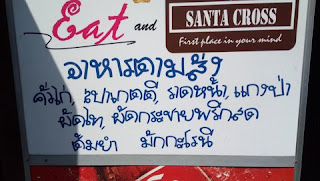 Eat and
SANTA CROSS
First place in your mind
อาหารตามสั่ง
คั่วไก่, สปาเกตตี้, ราดหน้า, แกงป่า
ผัดไท, ผัดกระชายพริกสด
ต้มยำ มักกะโรนี